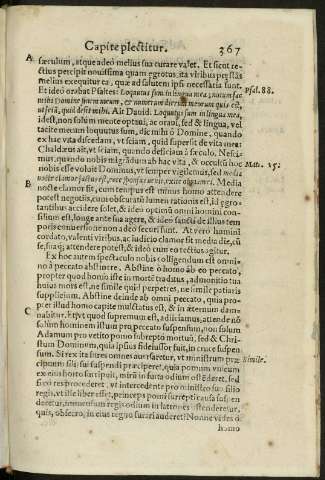 Capite plectitur. 367
A sæculum, atque adeò melius sua curare valet. Et sicut re-
ctius percipit nouissima quam egrotus, ita viribus præstās
melius exequitur ea, quæ ad salutem ipsi necessaria sunt.
Et ideò orabat Psaltes: Loquutus sum in lingua mea, notum fac Psal. 88.
mihi Domine finem meum, et numerum dierum meorum quis est,
vt sciã, quid desit mihi. Ait Dauid. Loquutus sum in lingua mea,
id est, non solùm mente optaui, ac oraui, sed & lingua, vel
tacitè mecum loquutus sum, dic mihi ô Domine, quando
ex hac vita discedam, vt sciam, quid supersit de vita mea:
Chaldæus ait, vt sciam, quando desiciam à sæculo. Nesci-
mus, quando nobis migrãdum ab hac vita, & occultũ hoc Math. 25.
nobis esse voluit Dominus, vt semper vigilemus, sed media
nocte clamor factus est, ecce sponsus venit, exite obuiam ei. Media
B nocte clamor fit, cum tempus est minus homo attendere
potest negotiis, cum obscuratũ lumen rationis est, id egro-
tantibus accidere solet, & ideò optimũ omni homini con-
silium est, longè ante sua agere, & ideò sancti de illius tem
poris conuersione non adeo securi sunt. At verò homini
cordato, valenti viribus, ac iudicio clamor fit medio die, cũ
se, sua q; attendere potest, & ideò cum eo rectius agitur.
Ex hoc autem spectaculo nobis colligendum est omni-
no à peccato abstinere. Abstine ô homo ab eo peccato,
propter quod homo iste in mortẽ traditur, admonitio tua
huius mors est, ne simile quid perpetres, ne simile patiaris
supplicium. Abstine deinde ab omni peccato, qua pro-
pter illud homo capite mulctatus est, & in æternum dam-
C nabitur. Et ivt quod supremum est, adiiciamus, attende nõ
solùm hominem istum propter peccatum suspensum, non solum
Adamum pro vetito pomo subreptò mortuũ, sed & Chri-
stum Dominum, quia ipsius fideiussor fuit, in cruce suspen
sum. Si rex ita fures omnes auersaretur, vt ministrum præ Simile.
cipuum filii sui suspendi præciperet, quia pomum vnicum
ex eius horto surripuit, mirũ in furta odium ostẽderet, sed
si eò res procederet, vt intercedente pro ministro suo filio
regis, vt ille liber esset, princeps pomi surrepti causa suspen
deretur, immensum regis odium in latrones ostenderetur,
quis, obsecro, in eius regno furari auderet? Nonne vides ô
homo